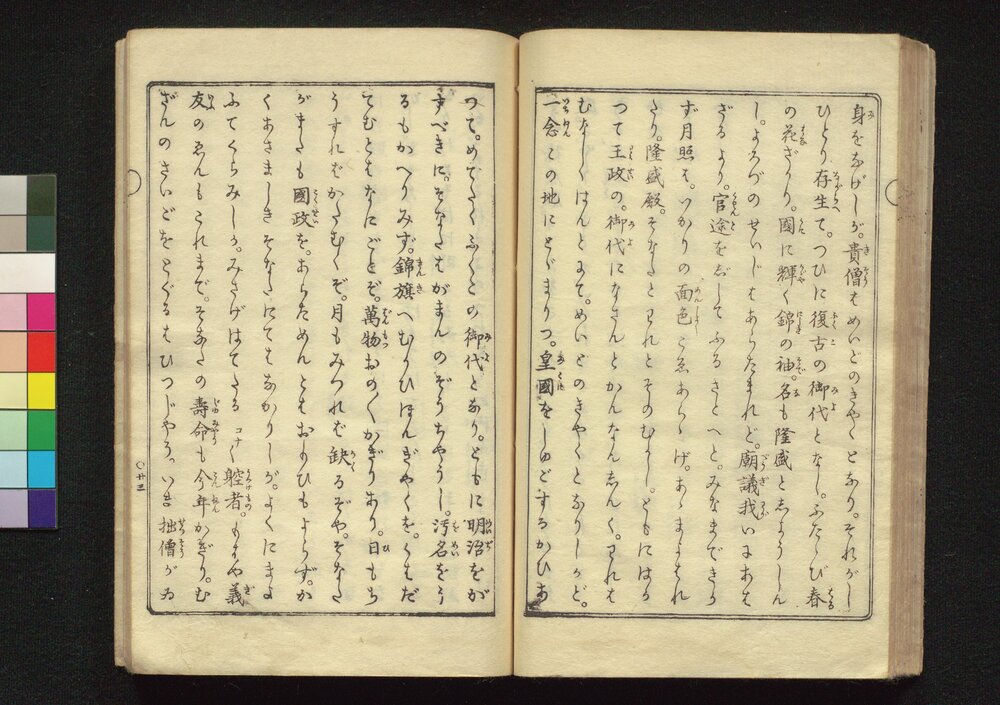 身をなげしが。貴僧もめいどのきやくとなり。それがし
ひとり存生て。つひに復古の御代となし。ふたゝび春
の花ざかり。國に輝く錦の袖。名も隆盛と志ようしん
し。よろづのせいじもあらたまれど。廟議我いにあはも
ざるより。官途を志してふるさとへと。みなまできか
ず月照は。いかりの面色こゑあらゝげ。あゝまよはれ
たり。隆盛殿。そなたとわれとそのむかし。ともにはか
つて王政の。御代になさんとかんなんしんく。われは
むなしくはんとにて。めいどのきやくとなりしかど。
一念この地にとゞまりつ。皇國をしゆごするかひあ
つて。めでたくふくこの御代となり。ともに明治をが
すべきに。そなたはがまんのぞうちやうし。汚名をう
るもかへりみず。錦旗へむかひほんぎやくを。くはだ
てむともなにごとぞ。萬物おの〱かぎりあり。日もち
うすればかたむくぞ。月もみつれば缺るぞや。そなた
がまたも國政を。あらためんともおもひもよらず。か
くあさましきそなたにてもなかりしが。よくにまよ
ふてくらみしか。みさげはてたるコナ〱䏢者。もはや義
友のゑんもこれまで。そなたの壽命も今年かぎり。む
ざんのさいごをとぐるもひつじやう。いき拙僧がゐ
〇廿三